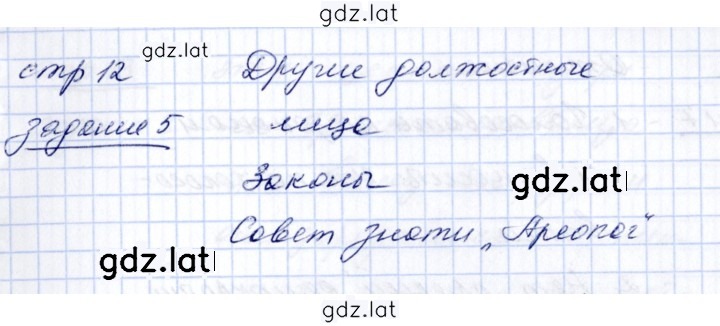 gdz.lat
стр 12 gdz.lat Другие должостные
задание 5 лица
Законы gdz.lat
Совет знати „Ареопаг"
gdz.lat
gdz.lat